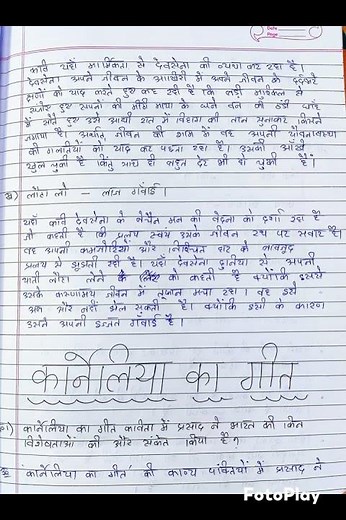 कवि यहाँ मार्मिकता से देवसेना की व्यथा कह रहा है।
देवसेना अपने जीवन के आखिरी में अपने जीवन के
को याद करते हुए कह रही है कि
हुए सपनों की मीठी के घने वन की
में सोते हुए उसे आधी रात में विहाग की तान सुनाकर किसने
जगाया है। अर्थात् जीवन की शाम में वह अपनी यौवनावस्था
की गलतियों को याद कर रहा है। उसकी आँखें
खुल चुकी है किंतु साथ ही बहुत देर भी हो चुकी है।
लौटा लो - लाज गंवाई।
यहाँ कवि देवसेना के मन की वेदना को दर्शा रहा है
जो कहती है कि प्रलय स्वयं उसके जीवन रथ पर सवार है।
वह अपनी कमजोरियों और निश्चित हार के बावजूद
प्रलय से रही है। यहाँ देवसेना दुनिया से अपनी
थाती लौटा लेने को कहती है क्योंकि इससे
उसके करुणामय जीवन में मचा रहा। वह इसे
अब और नहीं झेल सकती है। क्योंकि इसी के कारण
उसने अपनी इज्जत गंवाई है।
कार्नेलिया का गीत
कार्नेलिया का गीत कविता में प्रसाद ने भारत की किन
विशेषताओं की ओर संकेत किया है?
'कार्नेलिया का गीत' की काव्य पंक्तियों में प्रसाद ने
FotoPlay